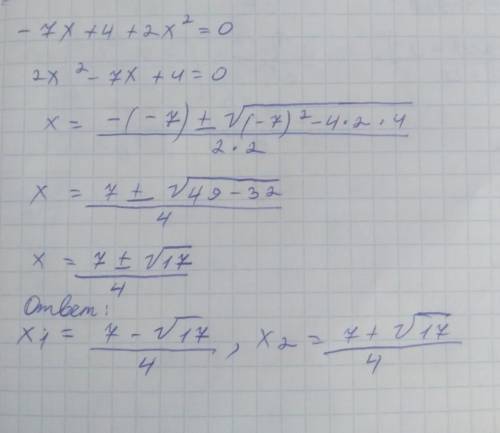 - 7x + 4 + 2x² = 0
2x² - 7x + 4 = 0
x = (-(-7) ± √((-7)² - 4·2·4)) / (2·2)
x = (7 ± √(49 - 32)) / 4
x = (7 ± √17) / 4
Ответ:
x₁ = (7 - √17) / 4 , x₂ = (7 + √17) / 4